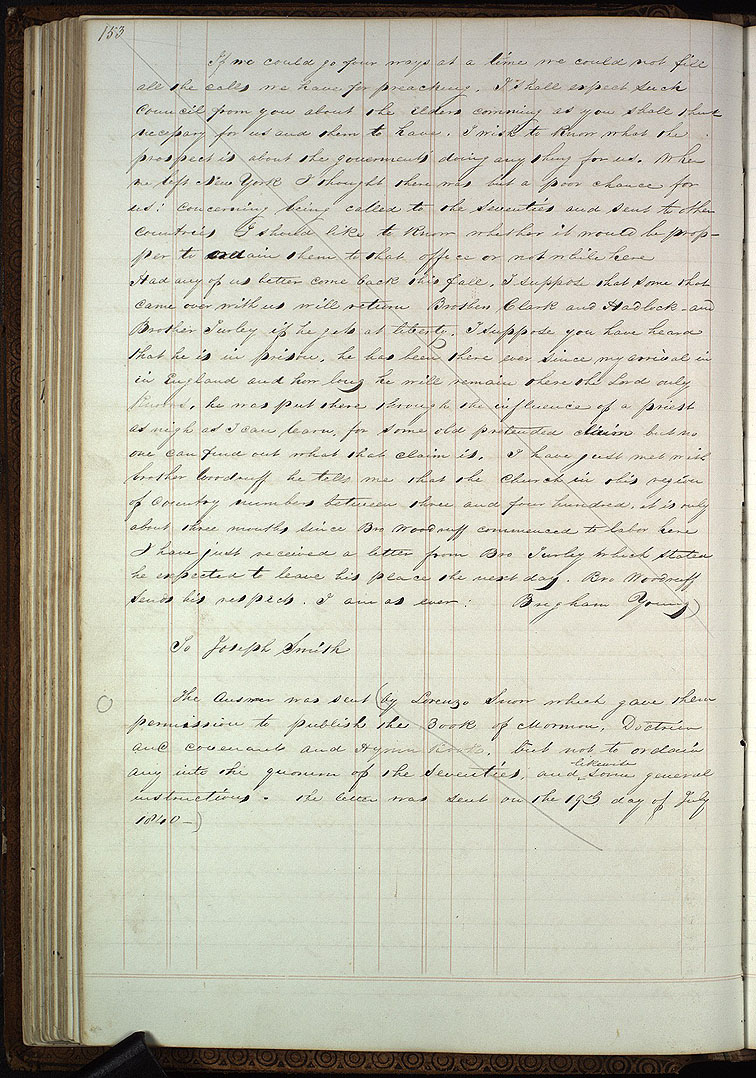 153
If we could go four ways at a time we could not fill
all the calls we have for preaching. I shall expect such
Council from you about the elders comming as you shall think
necessary for us and them to have. I wish to know what the
prospect is about the goverments doing any thing for us. When
we left New York I thought there was but a poor chance for
us: concerning being called to the seventies and sent to other
countries I should like to know whether it would be prop-
per to ordain them to that office or not while here
Had any of us better come back this fall. I suppose that some that
came over with us will return Brothers Clark and Hadlock and
Brother Turley if he gets at liberty. I suppose you have heard
that he is in prison, he has been there ever since my arrival in
in England and how long he will remain there the Lord only
knows, he was put there through the influence of a priest
as nigh as I can learn for some old pretended claim but no
one can find out what that claim is. I have just met with
brother Woodruff he tells me that the Church in this region
of country numbers between three and four hundred, it is only
about three months since Bro Woodruff commenced to labor here
I have just received a letter from Bro Turley which stated
he expected to leave his place the next day. Bro Woodruff
sends his respects. I am as ever: Brigham Young)
To Joseph Smith
The Answer was sent (by Lorenzo Snow which gave them
permission to publish the Book of Mormon, Doctrin
and covenants and Hymn Book, but not to ordain
any into the quorum of the Seventies, and likewise some general
instructions. the letter was sent on the 19th day of July
1840—)